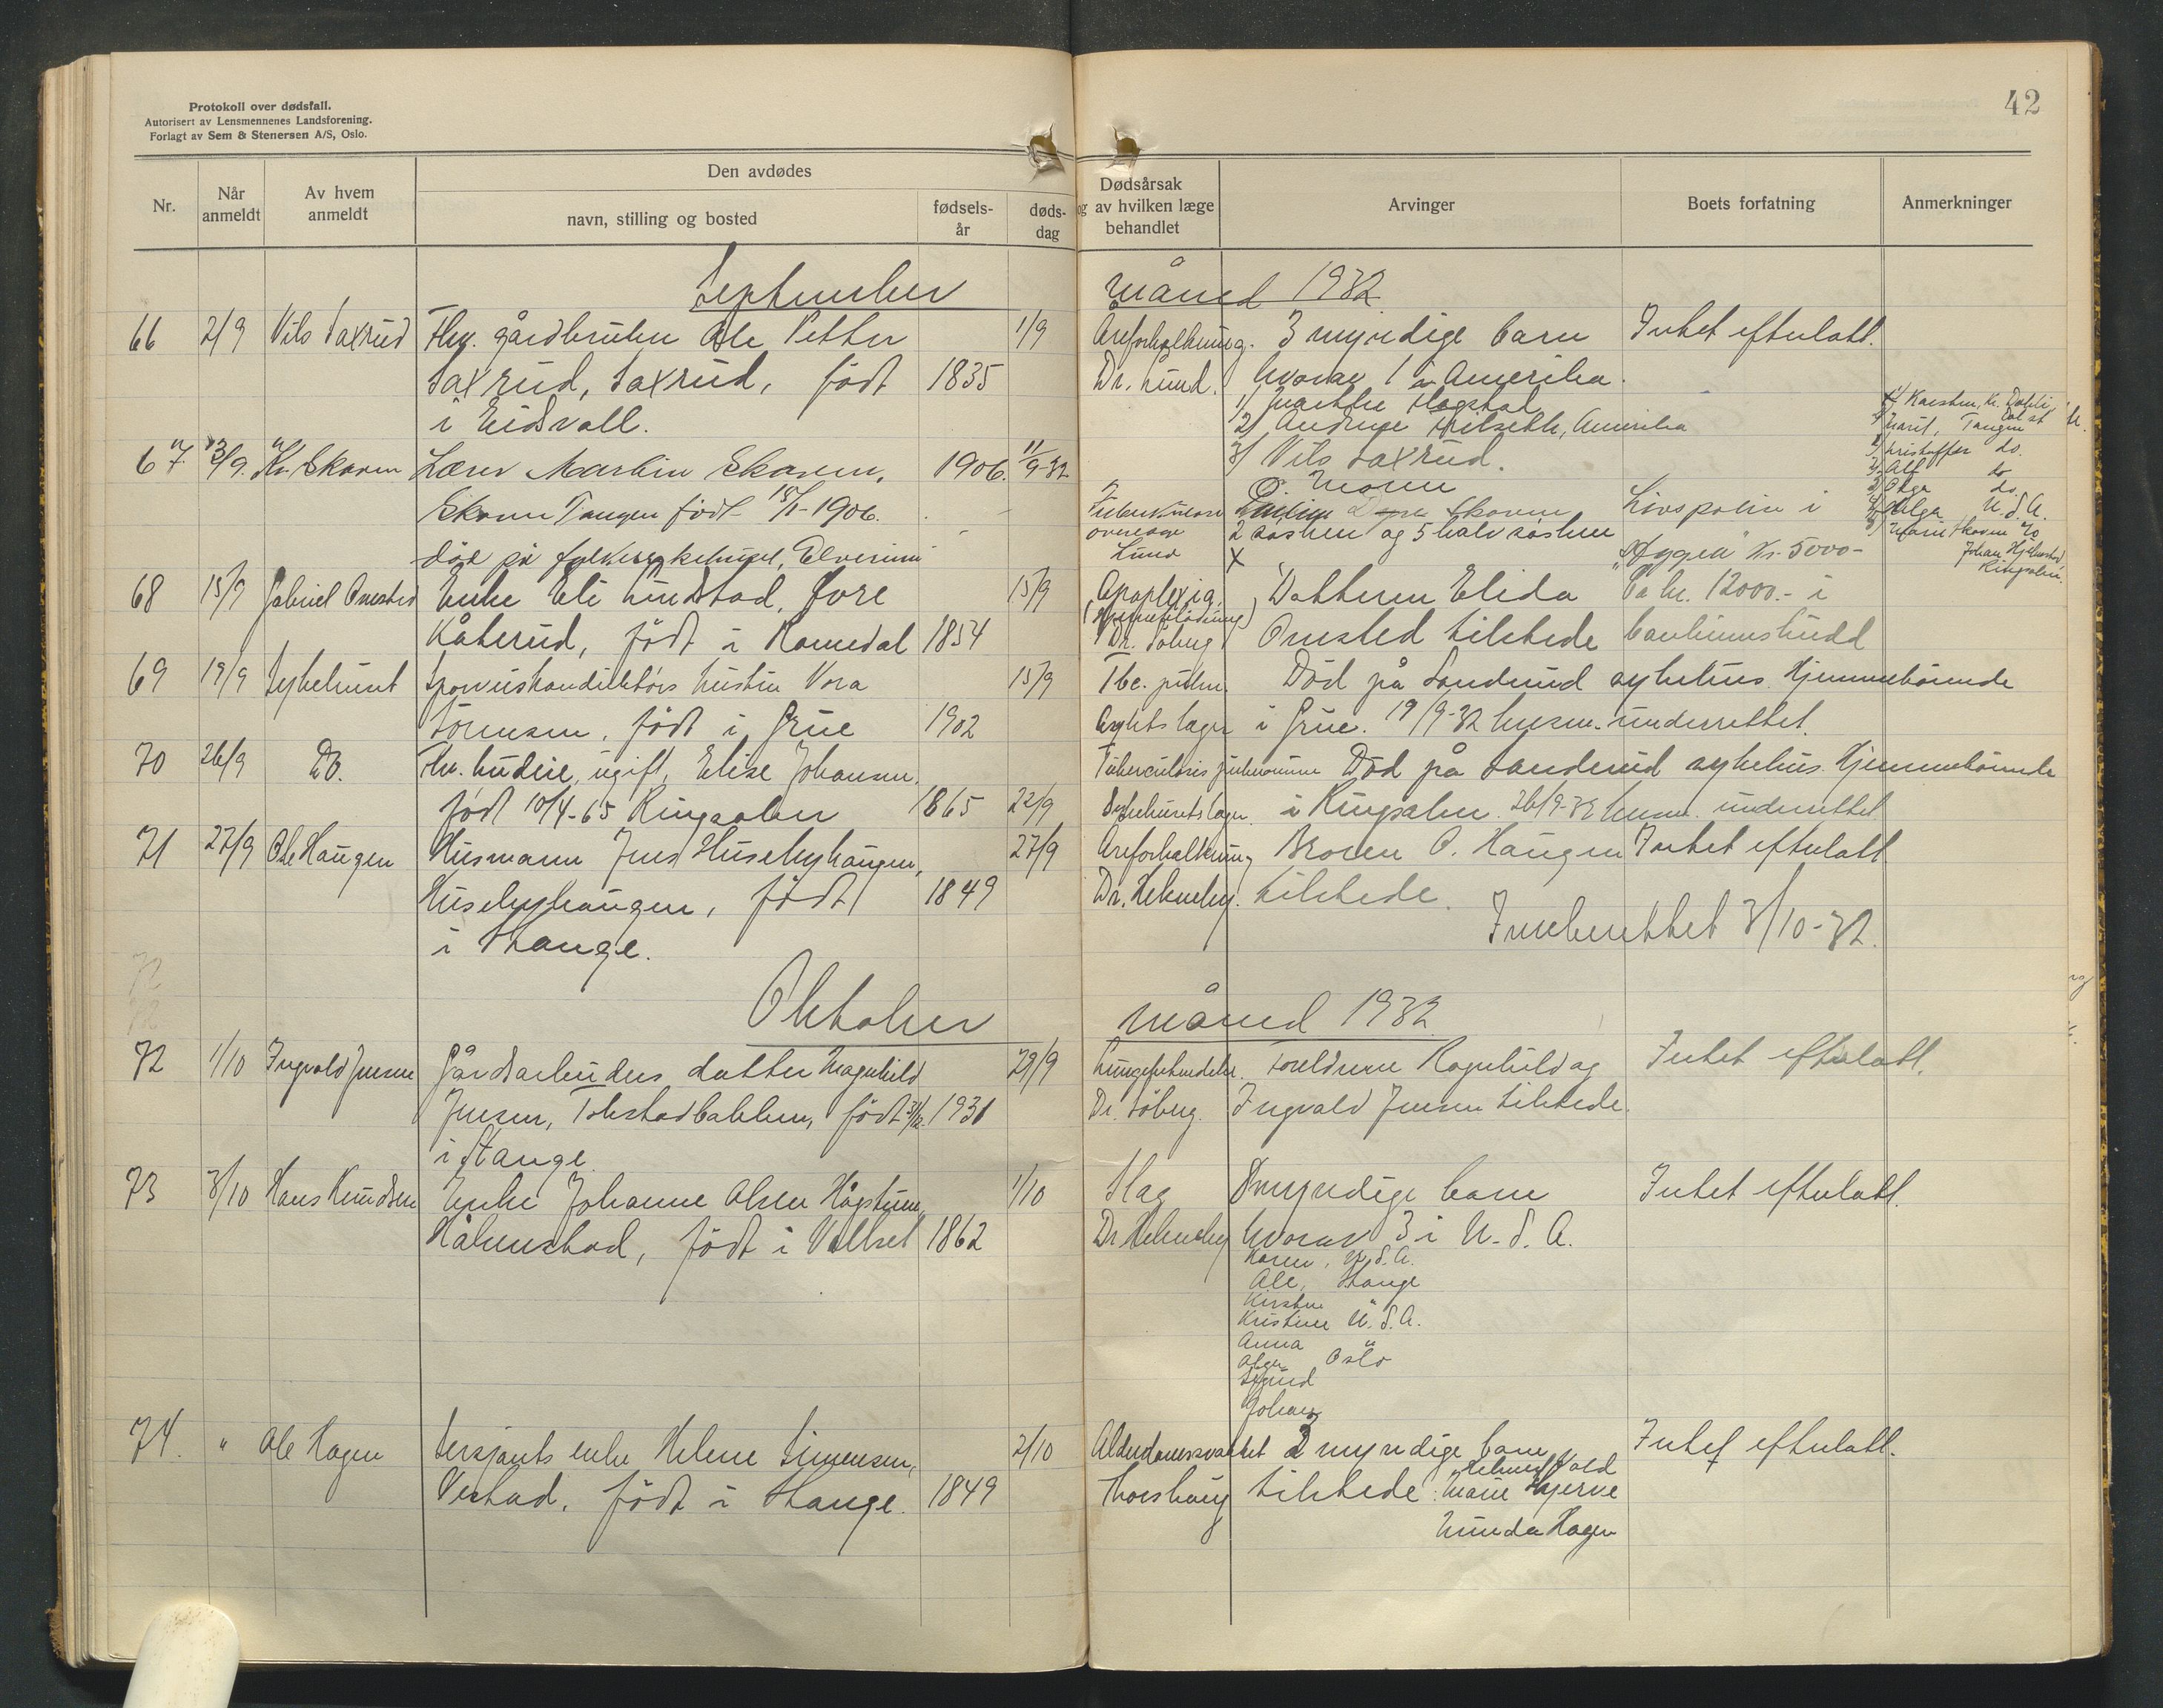 Protokoll over dødsfall.
Autorisert av Lensmennenes Landsforening.
Forlagt av Sem & Stenersen A/S, Oslo.
42
Nr.
Når anmeldt
Av hvem anmeldt
Den avdødes
navn, stilling og bosted
fødsels-år
døds-dag
Dødsårsak og av hvilken læge behandlet
Arvinger
Boets forfatning
Anmerkninger
September måned 1932
66 2/9 Nils Saxrud Fhv. gårdbruker Ole Petter 1/9 Åreforkalkning. 3 myndige barn Intet efterlatt.
Saxrud, Saxrud, født 1835 Dr. Lund. hvorav 1 i Amerika.
i Eidsvoll.
1) Marthe Hagstad
2) Andrine Hilseth, Amerika
3) Nils Saxrud.
67 13/9. Kr. Skaven Lærer Martin Skaven, 1906. 11/9-32
Skaven Tangen født 18/1-1906.
død på fylkessykehuset, Elverum
Lund
Moren
Skaven
2 søsken og 5 halvsøsken
X
Livspolise i
"Hygea" Kr. 5000-
1) Karsten, Kr. Dahli
Marit, Tangen st
Kristoffer do.
Alf do
Olga do.
Helga U.S.A.
Marie Skaven
Johan Hjelmstad,
Ringsaker.
68 15/9 Gabriel Omsted Enke Eli Lundstad, Øvre 15/9 Apoplexia, Datteren Elida Ca kr. 12000.- i
Kåterud, født i Romedal 1854 (Hjerneblødning) Dr. Søberg Omsted tilstede bankinnskudd
69 19/9 Sykehuset Sporveiskonduktørs hustru Nora 15/9 Tbc. pulm. Død på Sanderud sykehus. Hjemmehørende
Sørensen, født i Grue 1902 Asylets læge i Grue. 19/9-32 lensm. underrettet.
70 26/9 Do. Fhv. budeie, ugift, Elise Johansen, Tuberculosis pulmonum Død på Sanderud sykehus. Hjemmehørende
født 10/4-65 Ringsaker 1865 22/9 Sykehusets læge. i Ringsaker. 26/9-32 lensm. underrettet
71 27/9 Ole Haugen Husmann Jens Husebyhaugen, 27/9 Åreforkalkning Broren O. Haugen Intet efterlatt
Husebyhaugen, født 1849 Dr. Helneby. tilstede.
i Stange.
Innberettet 3/10-32.
Oktober måned 1932
72 1/10 Ingvald Jensen Gårdsarbeiders datter Magnhild 29/9 Lungebetendelse. Foreldrene Ragnhild og Intet efterlatt.
Jensen, Tokstadbakken, født 31/12. 1931 Dr. Søberg. Ingvald Jensen tilstede.
i Stange.
73 3/10 Hans Knudsen Enke Johanne Olsen Høgstuen, 1/10 Slag 8 myndige barn Intet efterlatt.
Håkenstad, født i Vallset 1862 Dr. Helneby hvorav 3 i U.S.A.
Karen, U.S.A.
Ole, Stange
Kirsten "
Kristine U.S.A.
Anna "
Olga Oslo
Sigrud
Johan
74. " Ole Hagen Sersjants enke Helene Simensen, 2/10 Alderdomssvakhet 2 myndige barn Intet efterlatt.
Vestad, født i Stange. 1849 Thorshaug tilstede: Marie Hjerve
Hagen